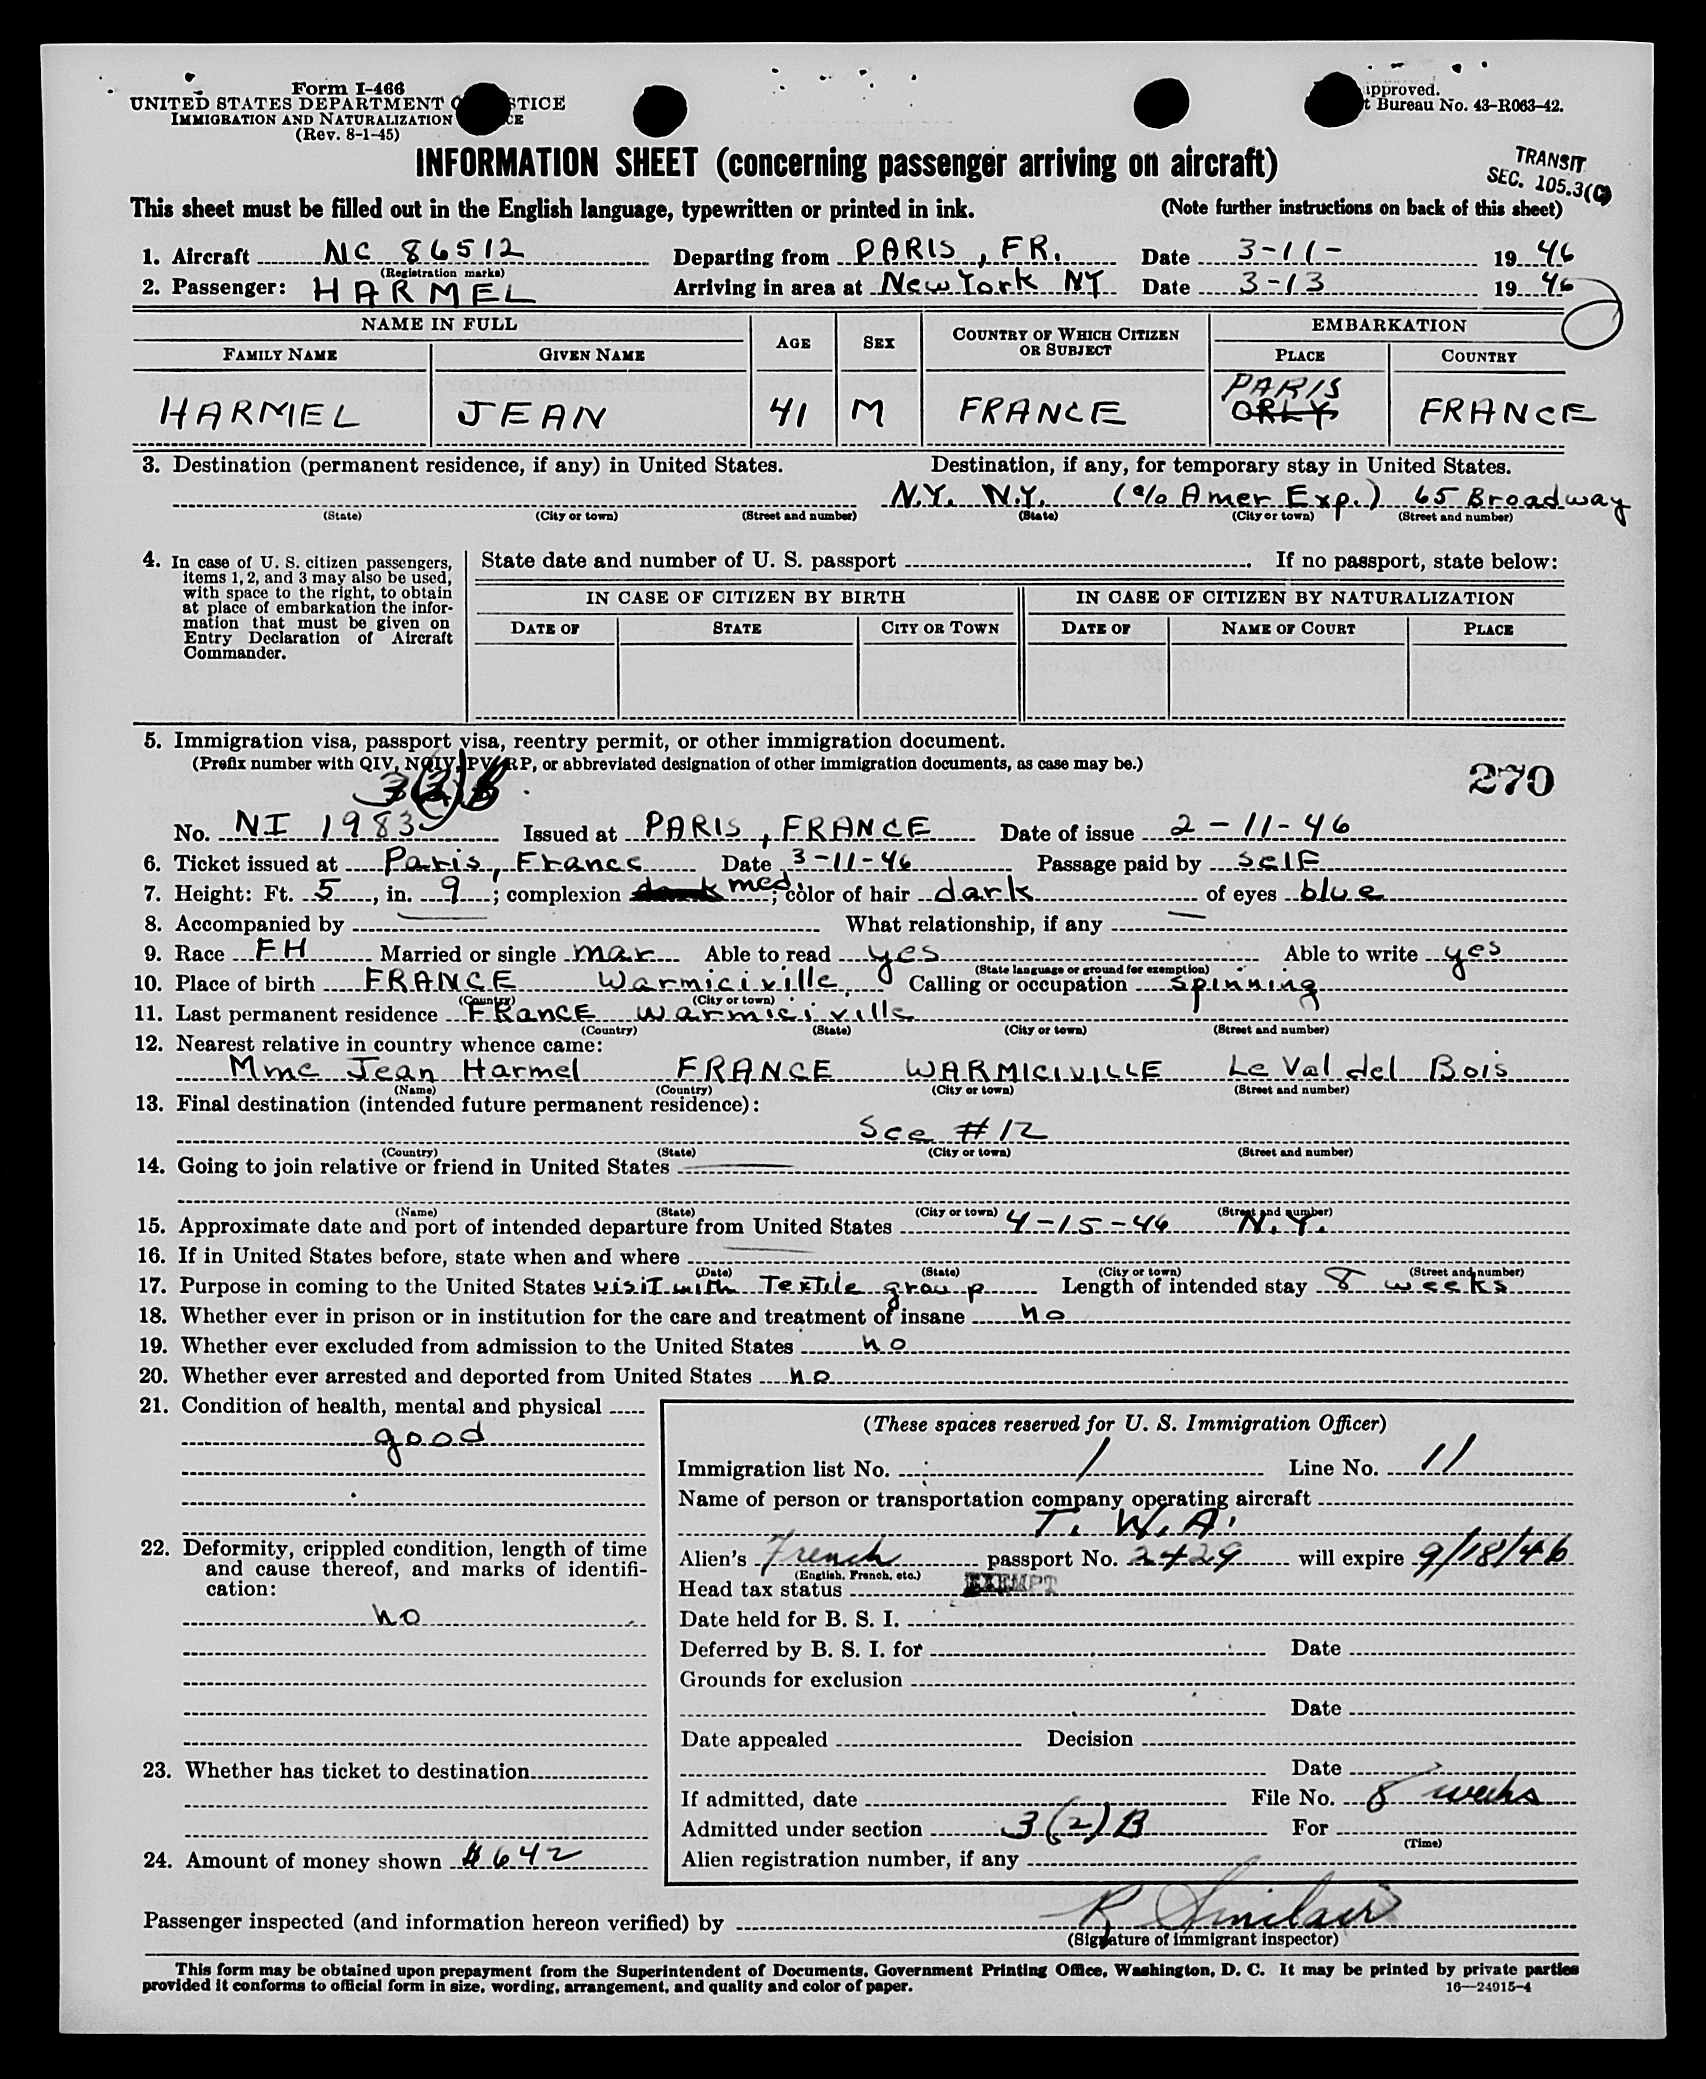 Form I-466
UNITED STATES DEPARTMENT O STICE
IMMIGRATION AND NATURALIZATION CE
(Rev. 8-1-45)
pproved.
t Bureau No. 43-R063-42.
INFORMATION SHEET (concerning passenger arriving on aircraft)
TRANSIT
SEC. 105.3(C)
This sheet must be filled out in the English language, typewritten or printed in ink. (Note further instructions on back of this sheet)
1. Aircraft NC 86512 Departing from PARIS, FR. Date 3-11- 1946
(Registration marks)
2. Passenger: HARMEL Arriving in area at New York NY Date 3-13 1946
NAME IN FULL AGE SEX COUNTRY OF WHICH CITIZEN OR SUBJECT EMBARKATION
FAMILY NAME GIVEN NAME PLACE COUNTRY
PARIS
HARMEL JEAN 41 M FRANCE ORLY FRANCE
3. Destination (permanent residence, if any) in United States. Destination, if any, for temporary stay in United States.
N.Y. N.Y. (c/o Amer Exp.) 65 Broadway
(State) (City or town) (Street and number) (State) (City or town) (Street and number)
4. In case of U. S. citizen passengers, items 1, 2, and 3 may also be used, with space to the right, to obtain at place of embarkation the information that must be given on Entry Declaration of Aircraft Commander.
State date and number of U. S. passport . If no passport, state below:
IN CASE OF CITIZEN BY BIRTH IN CASE OF CITIZEN BY NATURALIZATION
DATE OF STATE CITY OR TOWN DATE OF NAME OF COURT PLACE
5. Immigration visa, passport visa, reentry permit, or other immigration document.
(Prefix number with QIV, NQIV, PV, RP, or abbreviated designation of other immigration documents, as case may be.)
3(2)B
270
No. NI 1983 Issued at PARIS, FRANCE Date of issue 2-11-46
6. Ticket issued at Paris, France Date 3-11-46 Passage paid by self
7. Height: Ft. 5, in. 9; complexion dark med.; color of hair dark of eyes blue
8. Accompanied by — What relationship, if any —
9. Race FH Married or single mar Able to read yes Able to write yes
(State language or ground for exemption)
10. Place of birth FRANCE Warmiciville Calling or occupation spinning
(Country) (City or town)
11. Last permanent residence FRANCE Warmiciville
(Country) (State) (City or town) (Street and number)
12. Nearest relative in country whence came:
Mme Jean Harmel FRANCE WARMICIVILLE Le Val del Bois
(Name) (Country) (City or town) (Street and number)
13. Final destination (intended future permanent residence):
See #12
(Country) (State) (City or town) (Street and number)
14. Going to join relative or friend in United States —
(Name) (State) (City or town) (Street and number)
15. Approximate date and port of intended departure from United States 4-15-46 N.Y.
16. If in United States before, state when and where —
(Date) (State) (City or town) (Street and number)
17. Purpose in coming to the United States visit with Textile group Length of intended stay 8 weeks
18. Whether ever in prison or in institution for the care and treatment of insane no
19. Whether ever excluded from admission to the United States no
20. Whether ever arrested and deported from United States no
21. Condition of health, mental and physical
good
22. Deformity, crippled condition, length of time and cause thereof, and marks of identification:
no
23. Whether has ticket to destination
24. Amount of money shown $642
(These spaces reserved for U. S. Immigration Officer)
Immigration list No. 1 Line No. 11
Name of person or transportation company operating aircraft
T. W. A.
Alien's French passport No. 2429 will expire 9/18/46
(English, French, etc.)
Head tax status EXEMPT
Date held for B. S. I.
Deferred by B. S. I. for Date
Grounds for exclusion
Date
Date appealed Decision
Date
If admitted, date File No.
8 weeks
Admitted under section 3(2)B For
(Time)
Alien registration number, if any
Passenger inspected (and information hereon verified) by R Sinclair
(Signature of immigrant inspector)
This form may be obtained upon prepayment from the Superintendent of Documents, Government Printing Office, Washington, D. C. It may be printed by private parties
provided it conforms to official form in size, wording, arrangement, and quality and color of paper. 16—24915-4